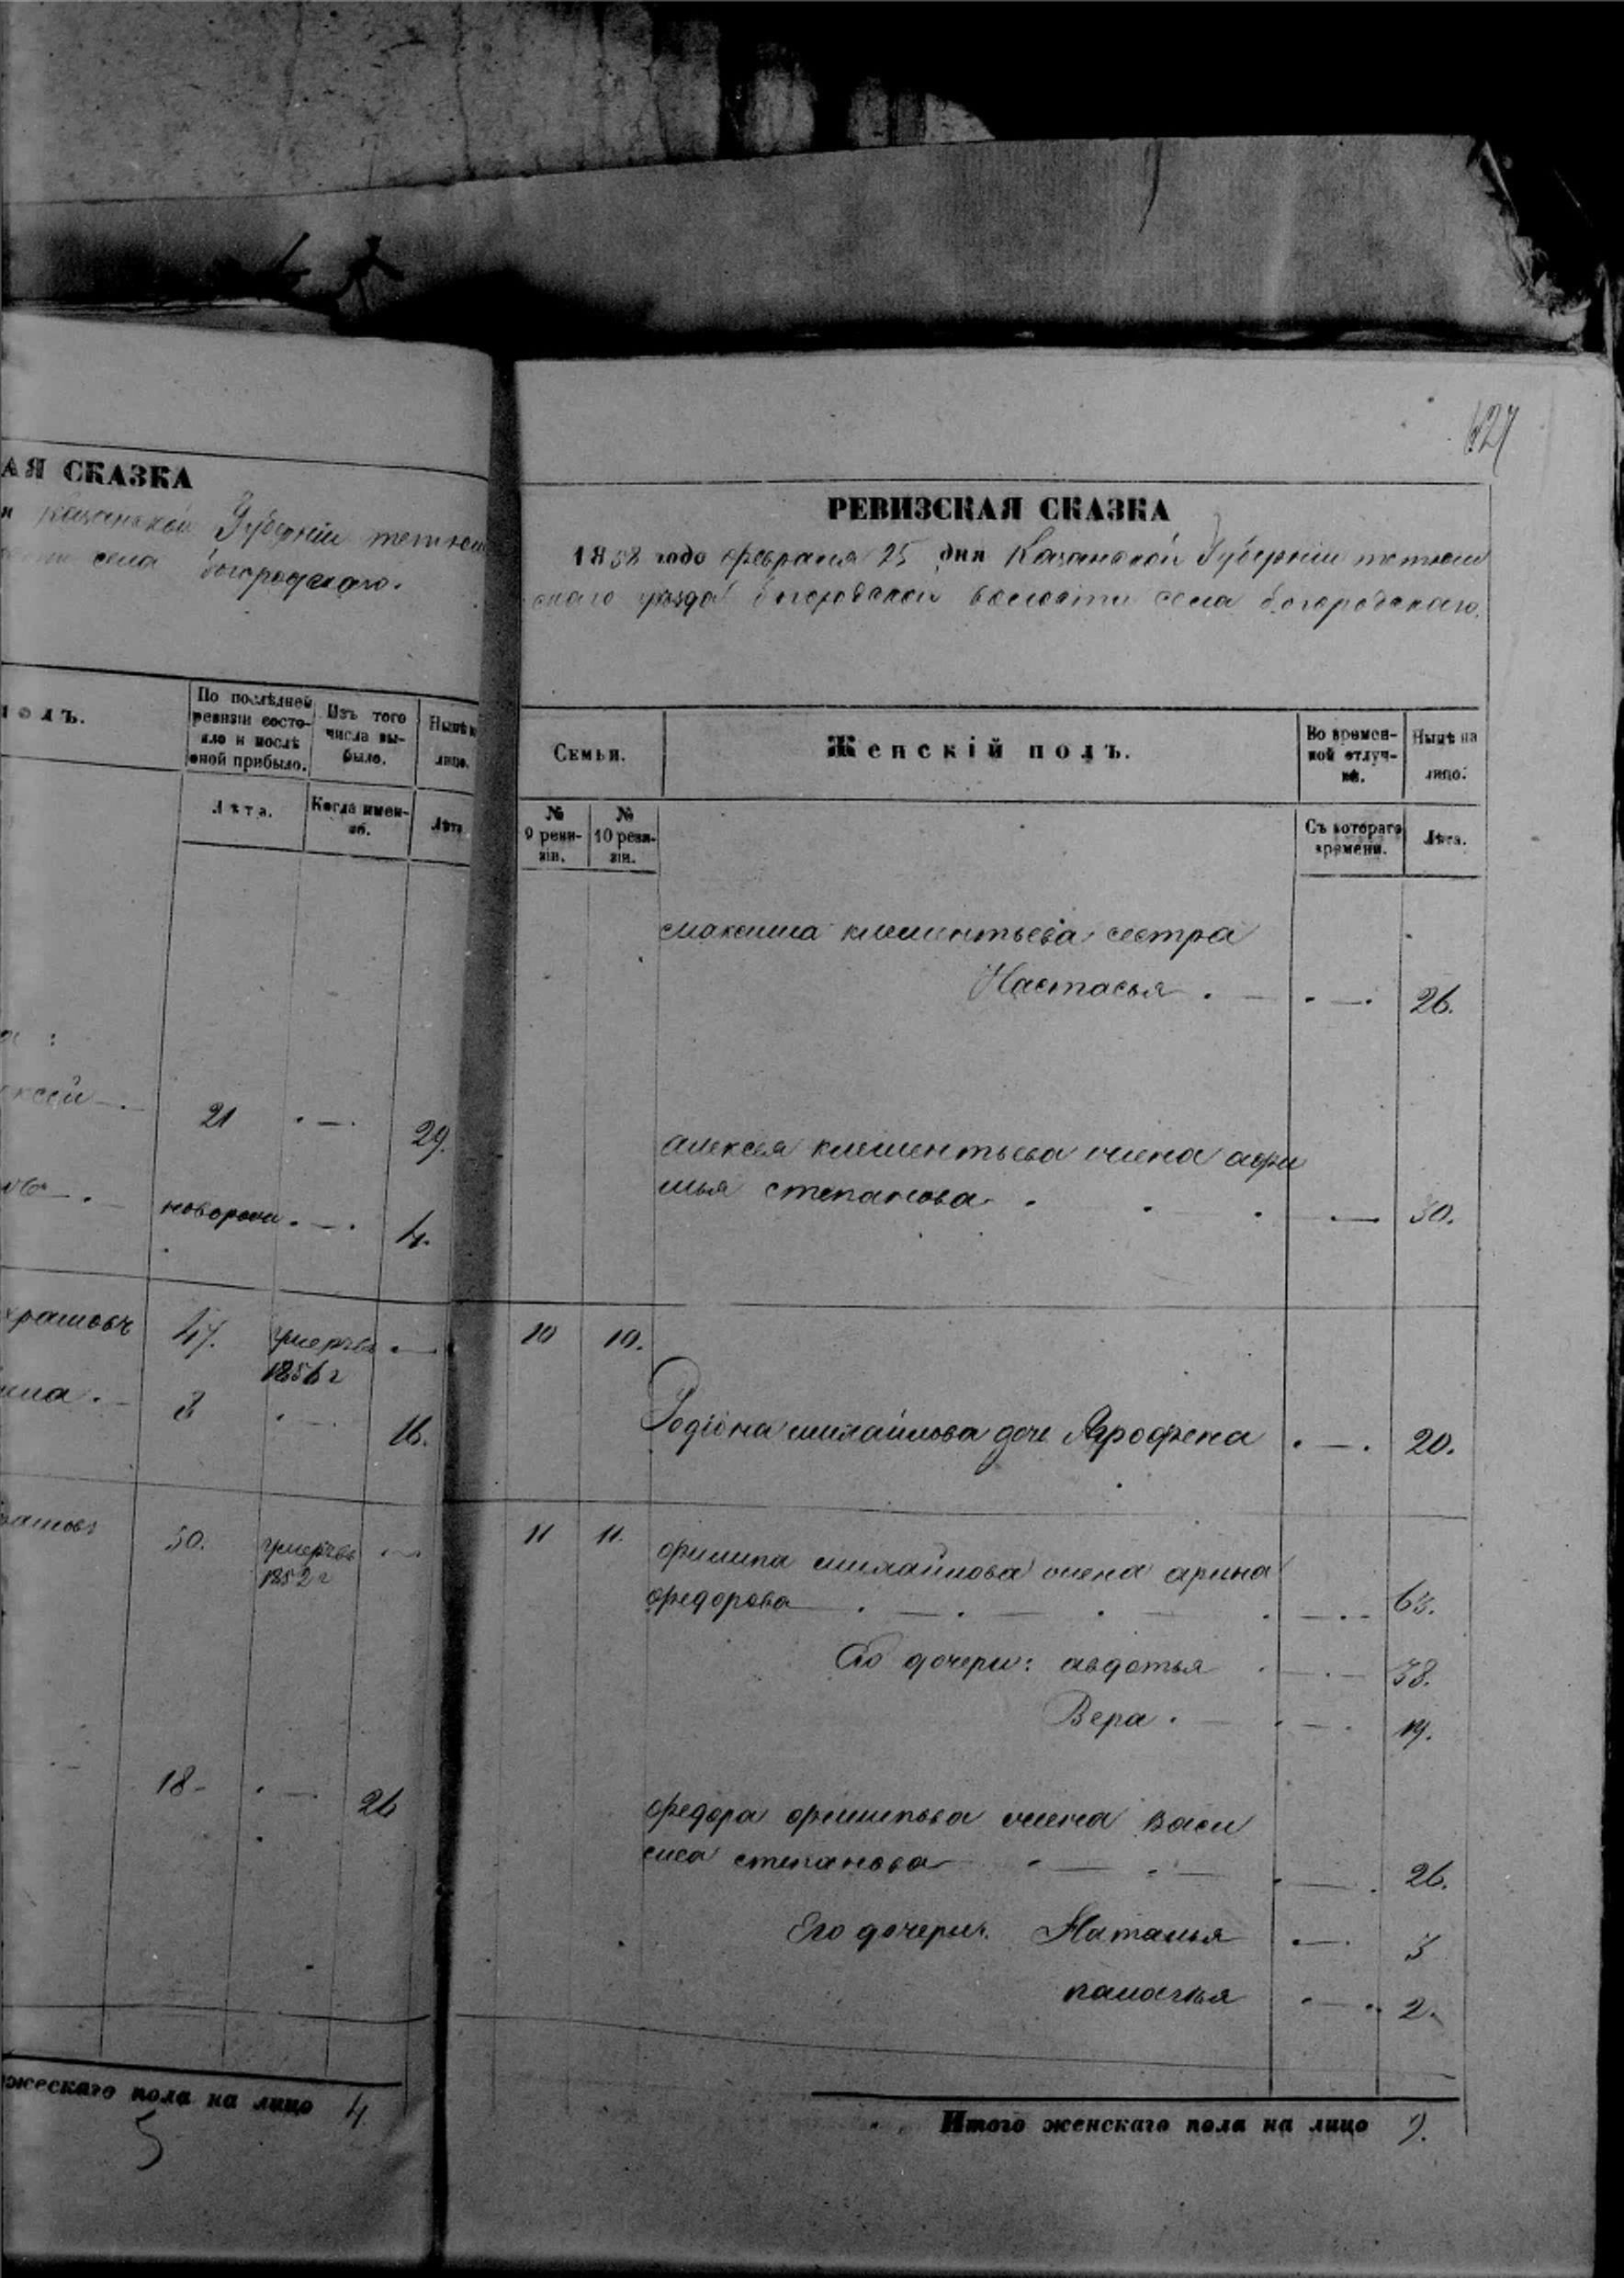 АЯ СКАЗКА
Казанской Губернiи тетюш
села богородскаго.
полъ.
По послѣдней ревизiи состояло и послѣ оной прибыло.
Изъ того числа выбыло.
Нынѣ на лицо.
Лѣта.
Когда именно.
Лѣта
ксѣй
21
29.
новорожд
4.
храмовъ
47.
умеръ въ
1856 г
8
16.
рамовъ
50.
умеръ въ
1852 г
18
26
жескаго пола на лицо 4.
5
127
РЕВИЗСКАЯ СКАЗКА
1858 года февраля 25 дня Казанской Губернiи тетюш
скаго уѣзда богородской волости села богородскаго.
Семьи.
Женскiй полъ.
Во временной отлучкѣ.
Нынѣ на лицо.
№ 9 ревизiи.
№ 10 ревизiи.
Съ котораго времени.
Лѣта.
максима клементьева сестра
Настасья 26.
алексея клементьева жена афи
мья степанова 30.
10 10.
Родiона михайлова дочь Агрофена 20.
11 11.
филипа михайлова жена арина
федорова 63.
Его дочери: авдотья 38.
Вера 19.
федора филипова жена васи
лиса степанова 26.
Его дочери: Наталья 3
палагья 2.
Итого женскаго пола на лицо 9.